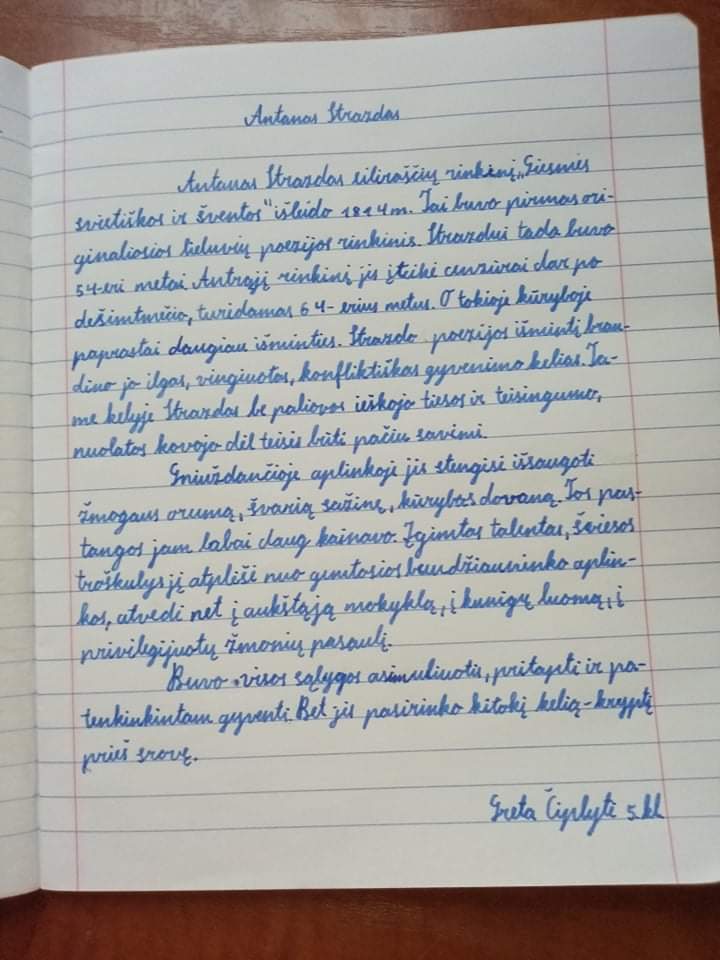 Antanas Strazdas
Antanas Strazdas eiliraščių rinkinį „Giesmės
svietiškos ir šventos" išleido 1814 m. Tai buvo pirmas ori-
ginaliosios lietuvių poezijos rinkinis. Strazdui tada buvo
54-eri metai. Antrąjį rinkinį jis įteikė cenzūrai dar po
dešimtmečio, turėdamas 64-erius metus. O tokioje kūryboje
paprastai daugiau išminties. Strazdo poezijos išmintį bran-
dino jo ilgas, vingiuotas, konfliktiškas gyvenimo kelias. Ta-
me kelyje Strazdas be paliovos ieškojo tiesos ir teisingumo,
nuolatos kovojo dėl teisės būti pačiu savimi.
Gniuždančioje aplinkoje jis stengėsi išsaugoti
žmogaus orumą, švarią sąžinę, kūrybos dovaną. Tos pas-
tangos jam labai daug kainavo. Įgimtas talentas, šviesos
troškulys jį atplėšė nuo gimtosios baudžiauninko aplin-
kos, atvedė net į aukštąją mokyklą, į kunigų luomą, į
privilegijuotų žmonių pasaulį.
Buvo visos sąlygos asimiliuotis, pritapti ir pa-
tenkinkintam gyventi. Bet jis pasirinko kitokį kelią-kryptį
prieš srovę.
Greta Čiplytė 5 kl